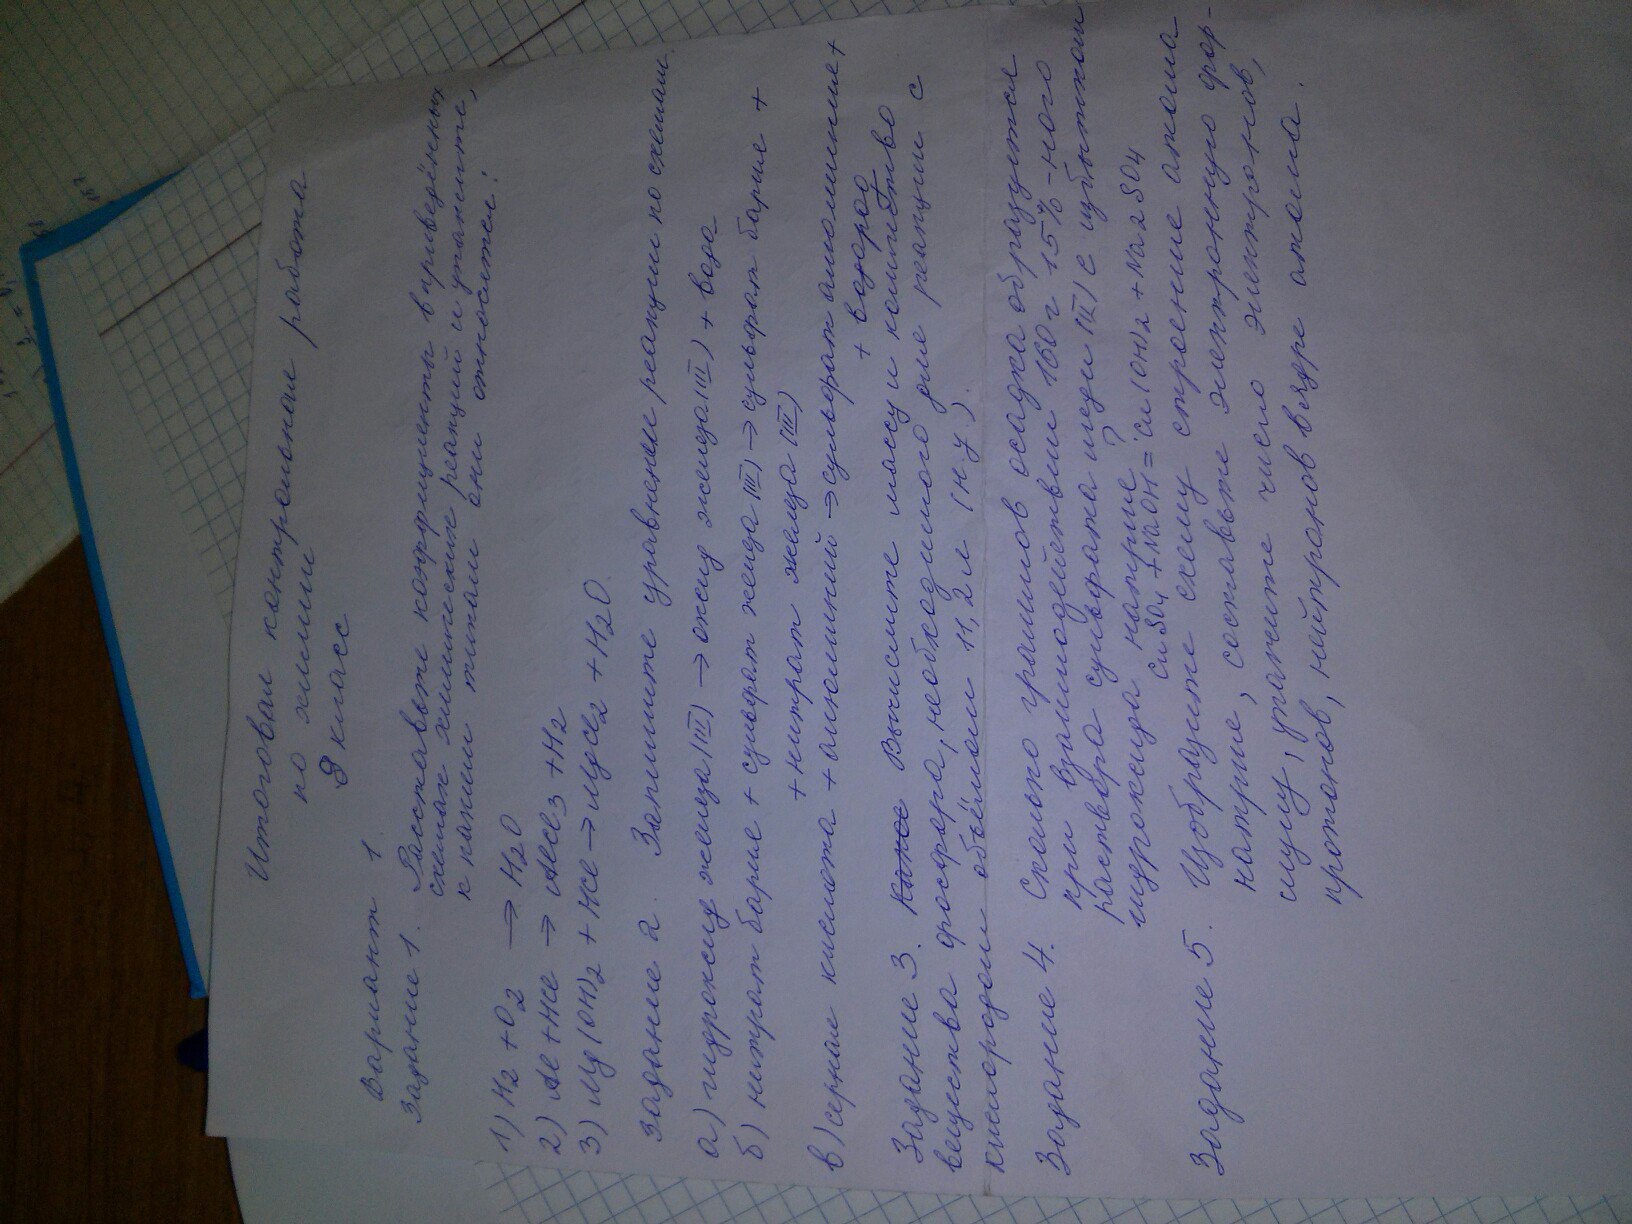 Итоговая контрольная работа
по химии
8 класс
Вариант 1
Задание 1. Расставьте коэффициенты в приведённых
схемах химических реакций и укажите,
к каким типам они относятся!
1) H2 + O2 → H2O
2) Al + HCl → AlCl3 + H2
3) Mg(OH)2 + HCl → MgCl2 + H2O.
Задание 2. Запишите уравнения реакции по схемам.
а) гидроксид железа (III) → оксид железа (III) + вода
б) нитрат бария + сульфат железа (III) → сульфат бария +
+ нитрат железа (III)
в) серная кислота + алюминий → сульфат алюминия +
+ водород
Задание 3. Вычислите массу и количество
вещества фосфора, необходимого для реакции с
кислородом объёмом 11,2 л (н.у.).
Задание 4. Сколько граммов осадка образуется
при взаимодействии 160 г 15%-ного
раствора сульфата меди (II) с избытком
гидроксида натрия?
CuSO4 + NaOH = Cu(OH)2 + Na2SO4
Задание 5. Изобразите схему строение атома
натрия, составьте электронную фор-
мулу, укажите число электронов,
протонов, нейтронов в ядре атома.